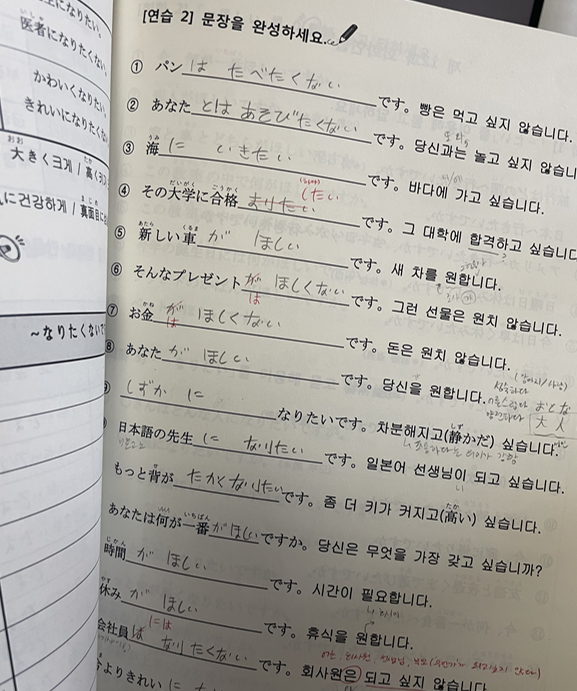 になりたい。
医者になりたくない。
かわいくなりたい。
きれいになりたくな
大きくヨゲ / 高く
に건강하게 / 真面目に
~なりたくないで
[연습 2] 문장을 완성하세요.
① パンは たべたくない です。 빵은 먹고 싶지 않습니다.
② あなたとは あそびたくない です。 당신과는 놀고 싶지 않습니
③ 海に いきたい です。 바다에 가고 싶습니다.
④ その大学に合格 したい です。 그 대학에 합격하고 싶습니다
⑤ 新しい車が ほしい です。 새 차를 원합니다.
⑥ そんなプレゼントが ほしくない です。 그런 선물은 원치 않습니다.
は
⑦ お金が ほしくない です。 돈은 원치 않습니다.
は
⑧ あなたが ほしい です。 당신을 원합니다.
しずかに なりたいです。 차분해지고(静かだ) 싶습니다.
おとな
大人
日本語の先生に なりたい です。 일본어 선생님이 되고 싶습니다.
もっと背がたかくなりたいです。 좀 더 키가 커지고(高い) 싶습니다.
あなたは何が一番がほしいですか。 당신은 무엇을 가장 갖고 싶습니까?
時間が ほしい です。 시간이 필요합니다.
休みが ほしい です。 휴식을 원합니다.
には
会社員は なりたくない です。 회사원은 되고 싶지 않습니다.
よりきれいに